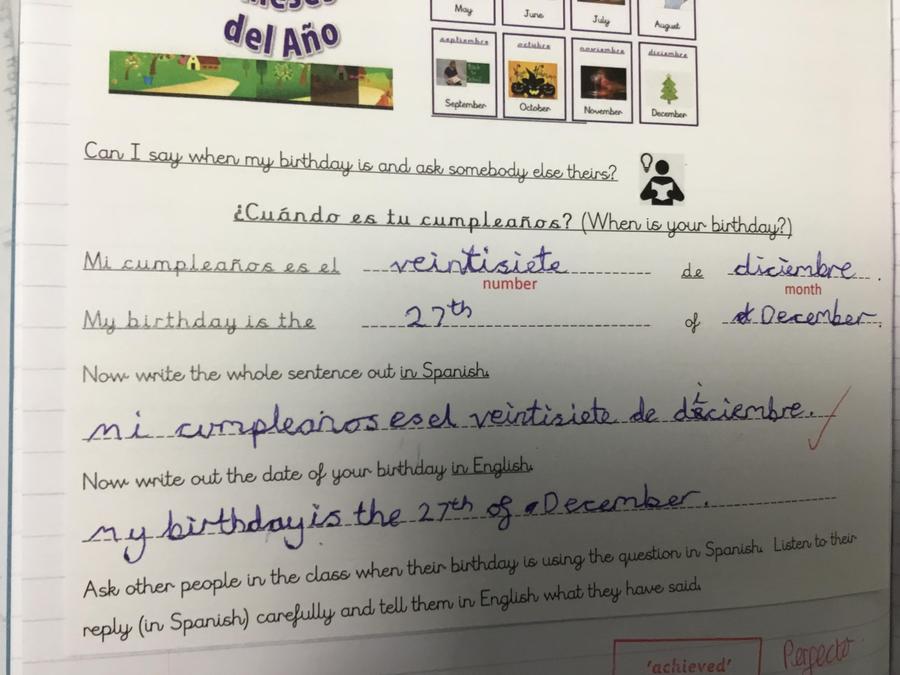 del Año
May June July August
septiembre octubre noviembre diciembre
September October November December
Can I say when my birthday is and ask somebody else theirs?
¿Cuándo es tu cumpleaños? (When is your birthday?)
Mi cumpleaños es el veintisiete de diciembre.
number month
My birthday is the 27th of December.
Now write the whole sentence out in Spanish.
mi cumpleaños es el veintisiete de diciembre.
Now write out the date of your birthday in English.
my birthday is the 27th of December.
Ask other people in the class when their birthday is using the question in Spanish. Listen to their
reply (in Spanish) carefully and tell them in English what they have said.
'achieved' Perfecto